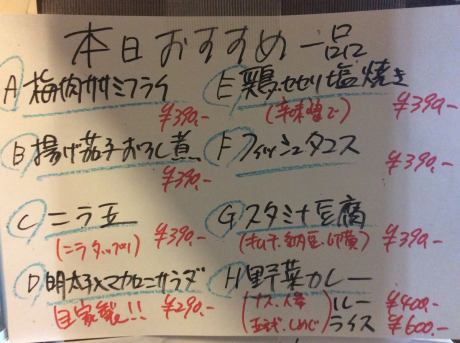 本日おすすめ一品
A 梅肉ササミフライ
¥390.-
B 揚げ茄子おろし煮
¥390.-
C ニラ玉
(ニラタップリ) ¥390.-
D 明太子×マカロニサラダ
自家製!! ¥290.-
E 鶏せせり塩焼き
(辛味噌で) ¥390.-
F フィッシュタコス
¥390.-
G スタミナ豆腐
(キムチ、納豆、卵黄) ¥390.-
H 野菜カレー
(ナス、人参 ルー ¥400.-
玉ネギ、しめじ) ライス ¥600.-